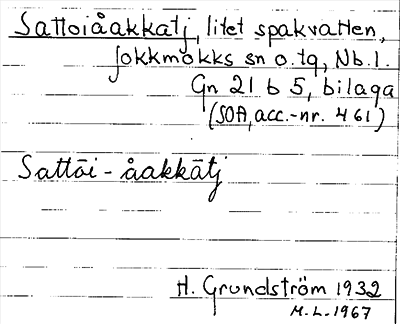 Sattoiåakkatj, litet spakvatten,
Jokkmokks sn o. tg, Nb. l.
Gn 21 b 5, bilaga
(SOA, acc.-nr. 461)
Sattōi - åakkātj
H. Grundström 1932
M.L. 1967